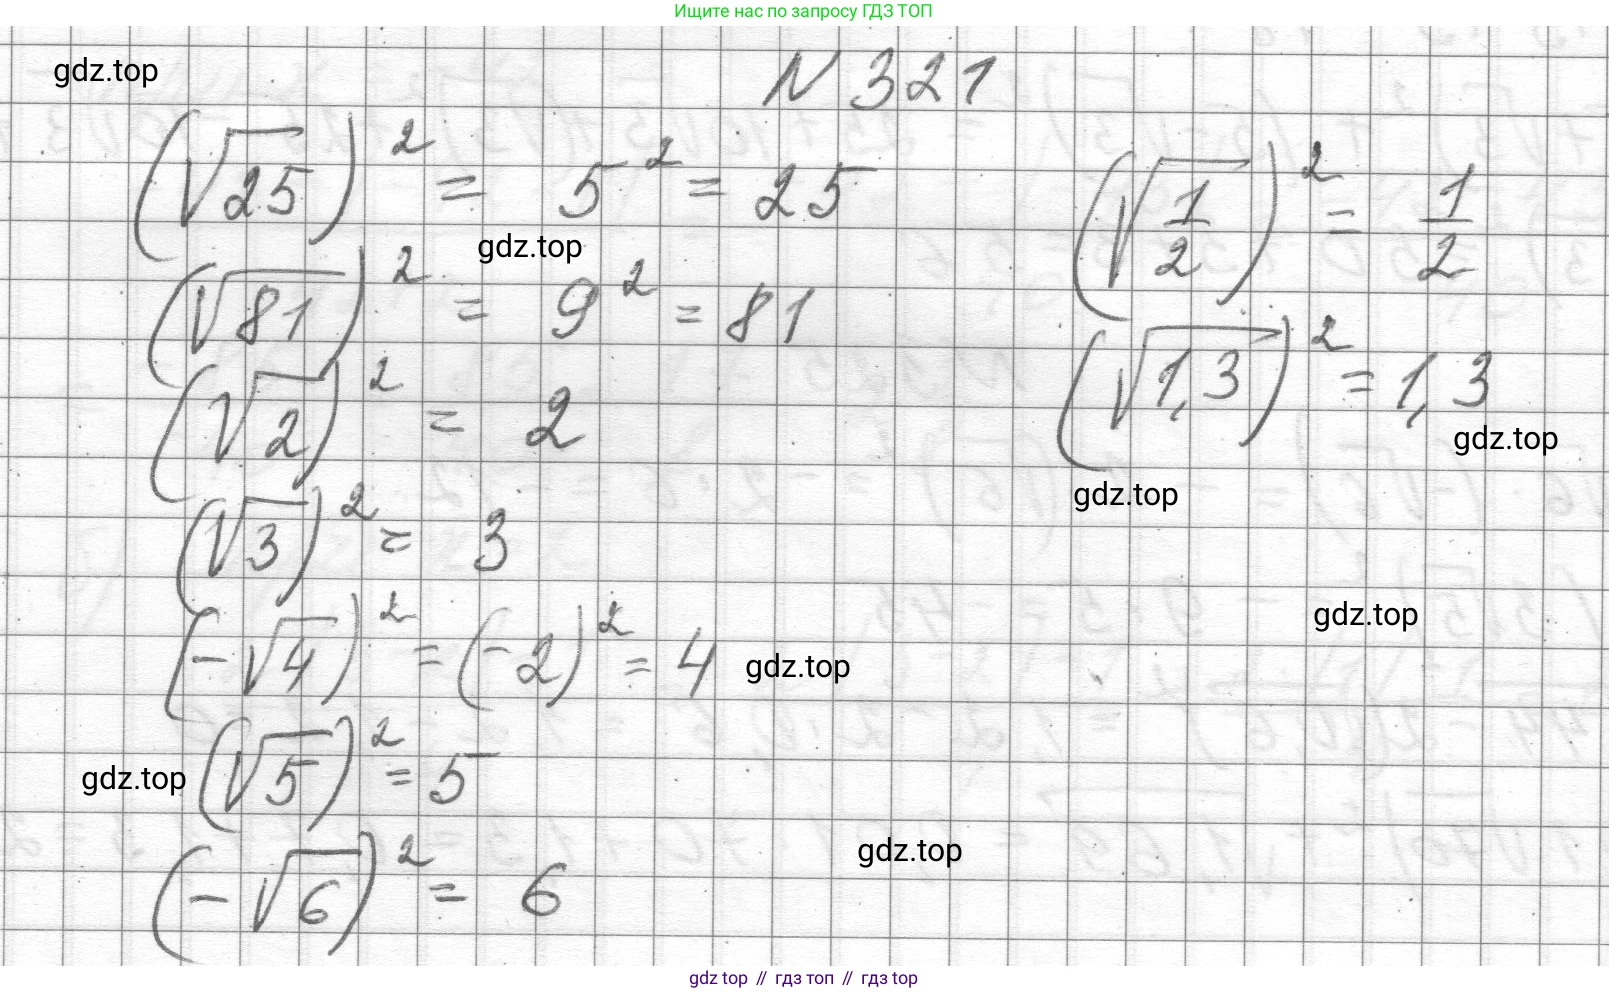 Ищите нас по запросу ГДЗ ТОП
gdz.top
N 321
(√25)² = 5² = 25
gdz.top
(√81)² = 9² = 81
(√2)² = 2
(√3)² = 3
(-√4)² = (-2)² = 4
gdz.top
gdz.top
(√5)² = 5
(-√6)² = 6
(√1/2)² = 1/2
(√1,3)² = 1,3
gdz.top
gdz.top
gdz.top
gdz.top
gdz top // гдз топ // гдз top